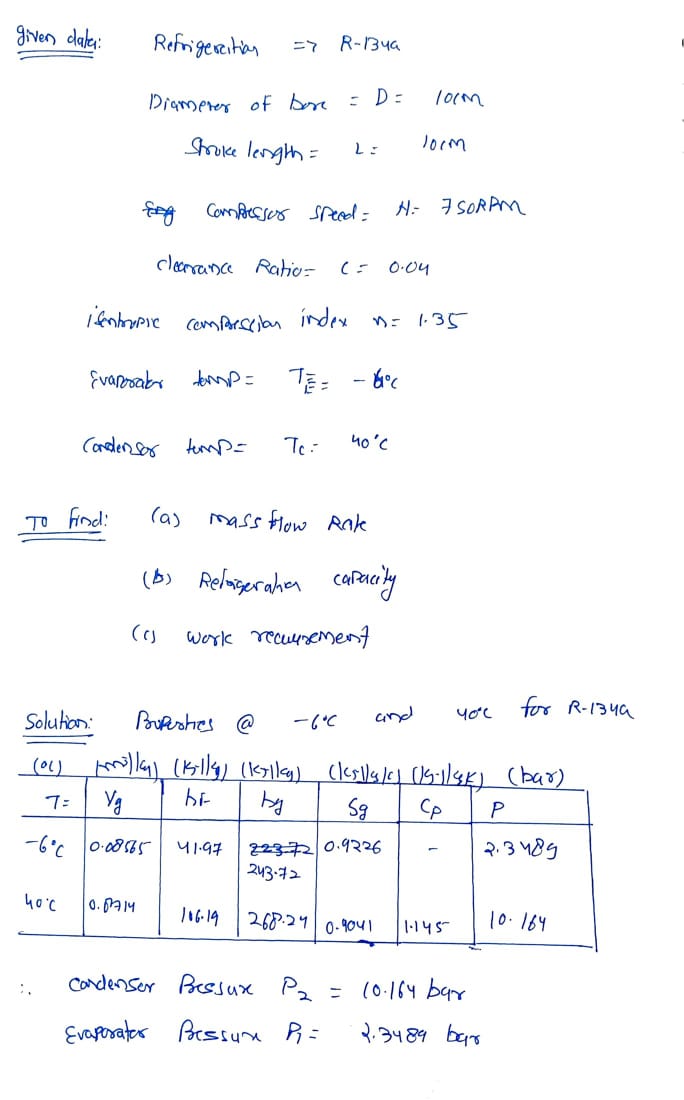 given data: Refrigeration => R-134a
Diameter of bore = D = 10cm
Stroke length = L = 10cm
Compressor speed = N = 750RPM
clearance Ratio = C = 0.04
isentropic compression index n = 1.35
Evaporator temp = TE = -6°C
Condensor temp = Tc = 40°C
To find: (a) mass flow Rate
(b) Refrigeration capacity
(c) work requirement
Solution: Properties @ -6°C and 40°C for R-134a
(°C) (m³/kg) (KJ/kg) (KJ/kg) (KJ/kg/K) (KJ/kgK) (bar)
T= Vg hf hg Sg Cp P
-6°C 0.08565 41.97 223.72 0.9226 - 2.3489
243.72
40°C 106.19 268.24 0.9041 1.145 10.164
∴ Condenser Pressure P2 = 10.164 bar
Evaporator Pressure P1 = 2.3489 bar